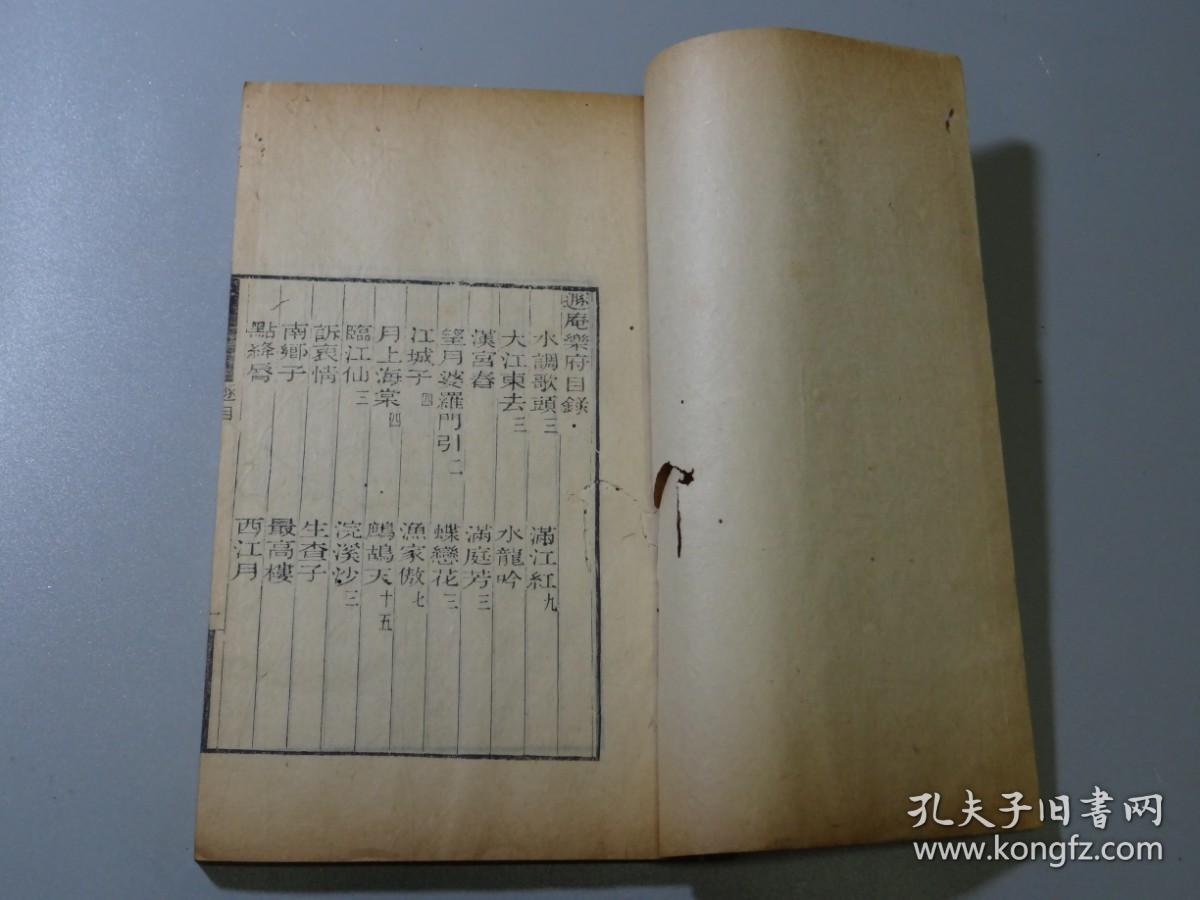 遯庵樂府目錄
水調歌頭三 滿江紅九
大江東去三 水龍吟
漢宮春 滿庭芳三
望月婆羅門引二 蝶戀花三
江城子四 漁家傲七
月上海棠四 鷓鴣天十五
臨江仙三 浣溪沙三
訴衷情 生查子
南鄉子 最高樓
點絳唇 西江月
遯目
一
孔夫子旧书网
www.kongfz.com